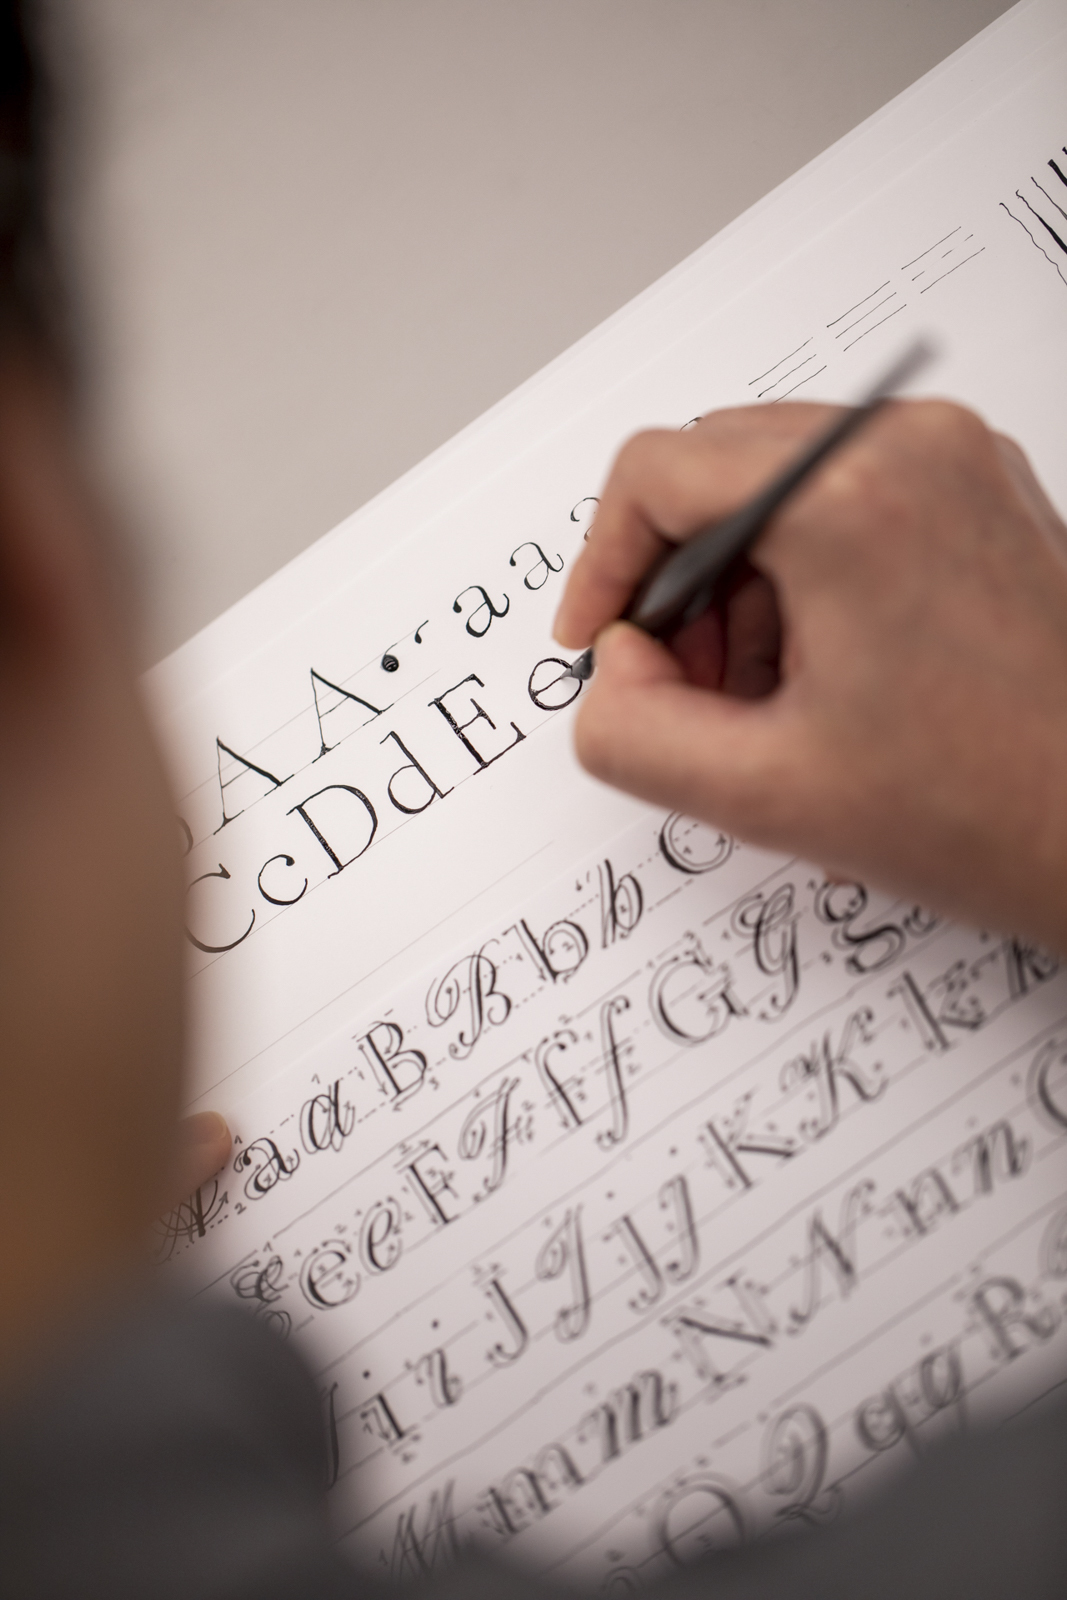 A A a a a
C c D d E e
a a B B b b C
e e F F f f G G g
i i J J j j K K k k
m m N N n n
Q q q R